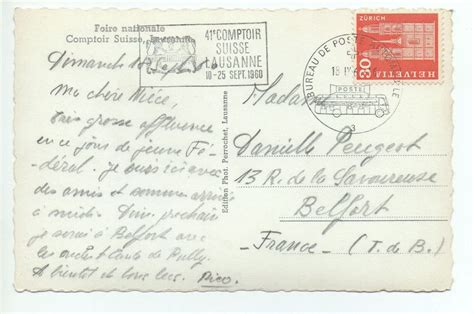 Foire nationale
Comptoir Suisse, Lausanne
41e COMPTOIR
SUISSE
LAUSANNE
10-25 SEPT. 1960
BUREAU DE POSTE
18 IX
POSTE
3
ZÜRICH
30
HELVETIA
Dimanche
Ma chère Nièce,
Très grosse affluence
en ce jour de jeune Fé-
déral. Je suis ici avec
des amis et sommes arrivés
à midi. Dim. prochain
je serai à Belfort avec
de Pully.
A bientôt et bons becs. Pico.
Edition Phot. Perrochet, Lausanne
Madame
Danielle Peugeot
13 R. de la Savoureuse
Belfort
France (T. de B.)